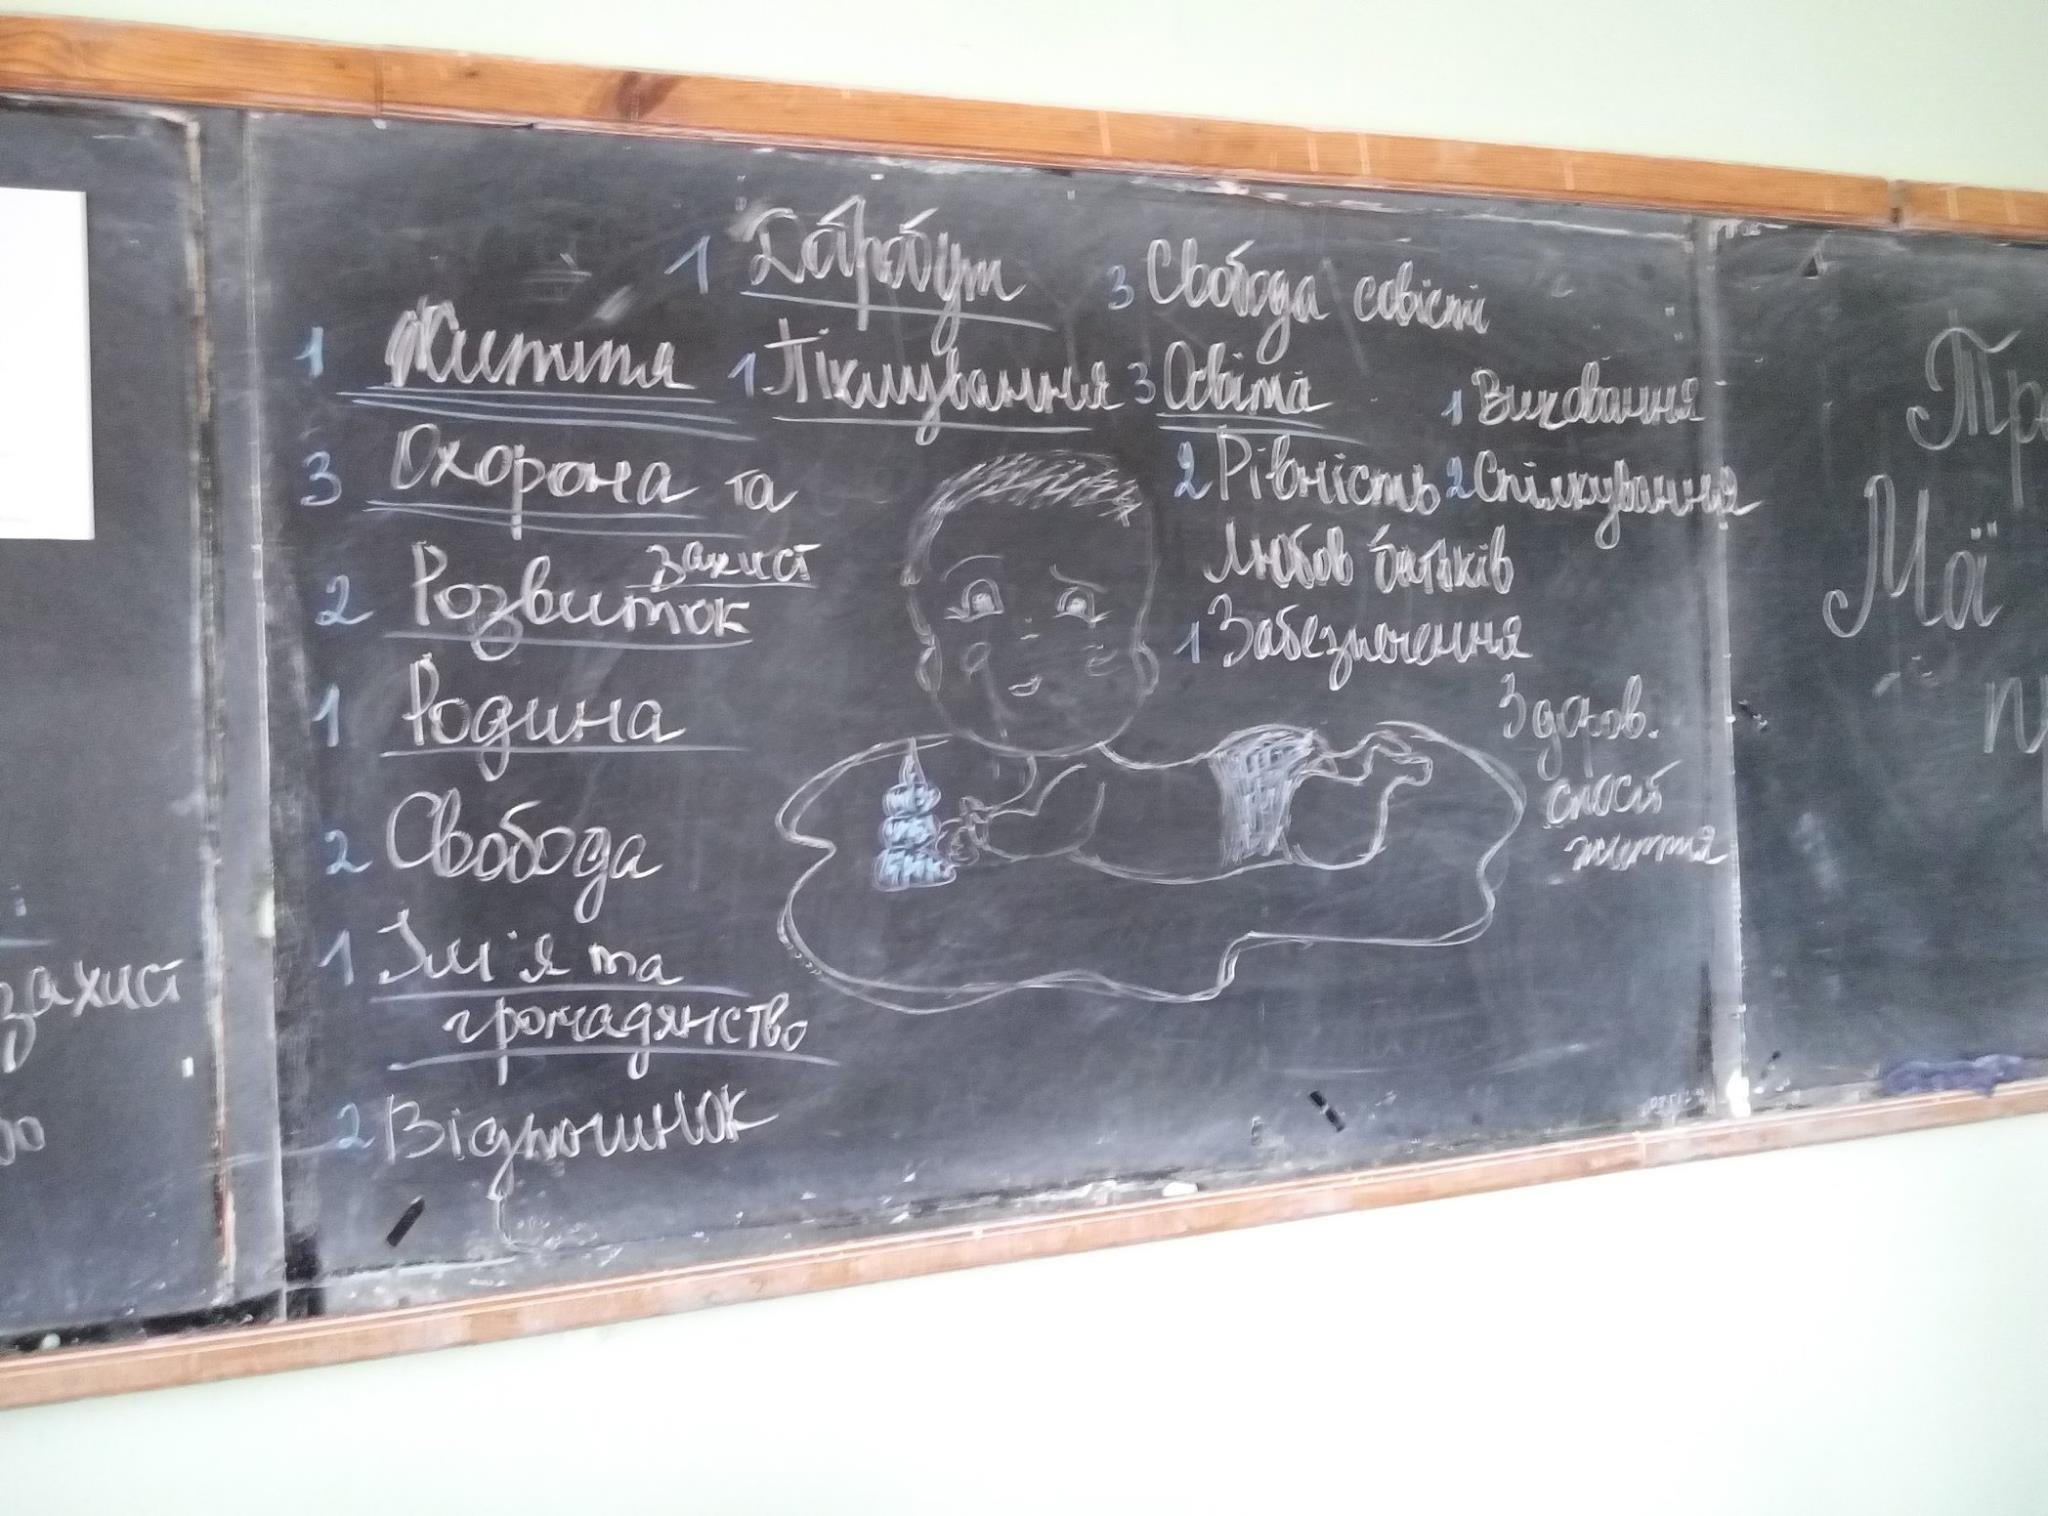 1 Добробут
3 Свобода совісті
1 Життя
1 Піклування
3 Освіта
1 Виховання
3 Охорона та
захист
2 Рівність
2 Спілкування
2 Розвиток
Любов батьків
1 Забезпечення
1 Родина
Здоров.
спосіб
життя
2 Свобода
1 Ім'я та
громадянство
2 Відпочинок
захист
Мої